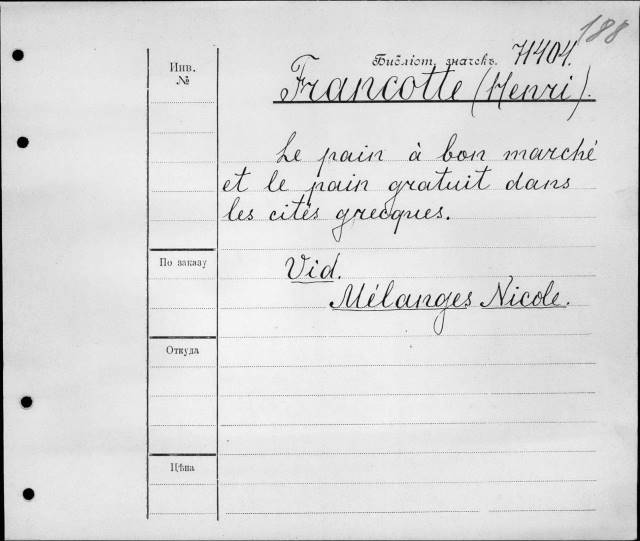 188
Библіот. значекъ. 71404.
Инв.
№
Francotte (Henri).
Le pain à bon marché
et le pain gratuit dans
les cités grecques.
По заказу
Vid.
Mélanges Nicole.
Откуда
Цѣна